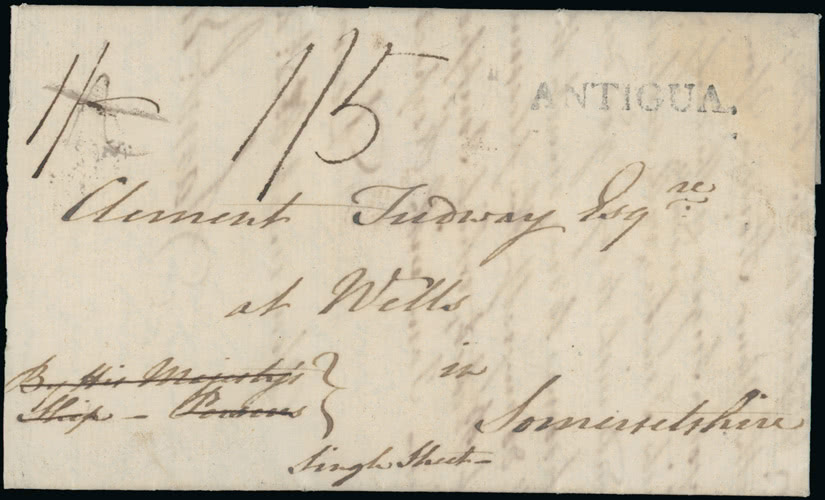 1/ 1/5 ANTIGUA.
Clement Tudway Esqre
at Wells
in
Somersetshire
By His Majesty's
Ship -
Single Sheet -